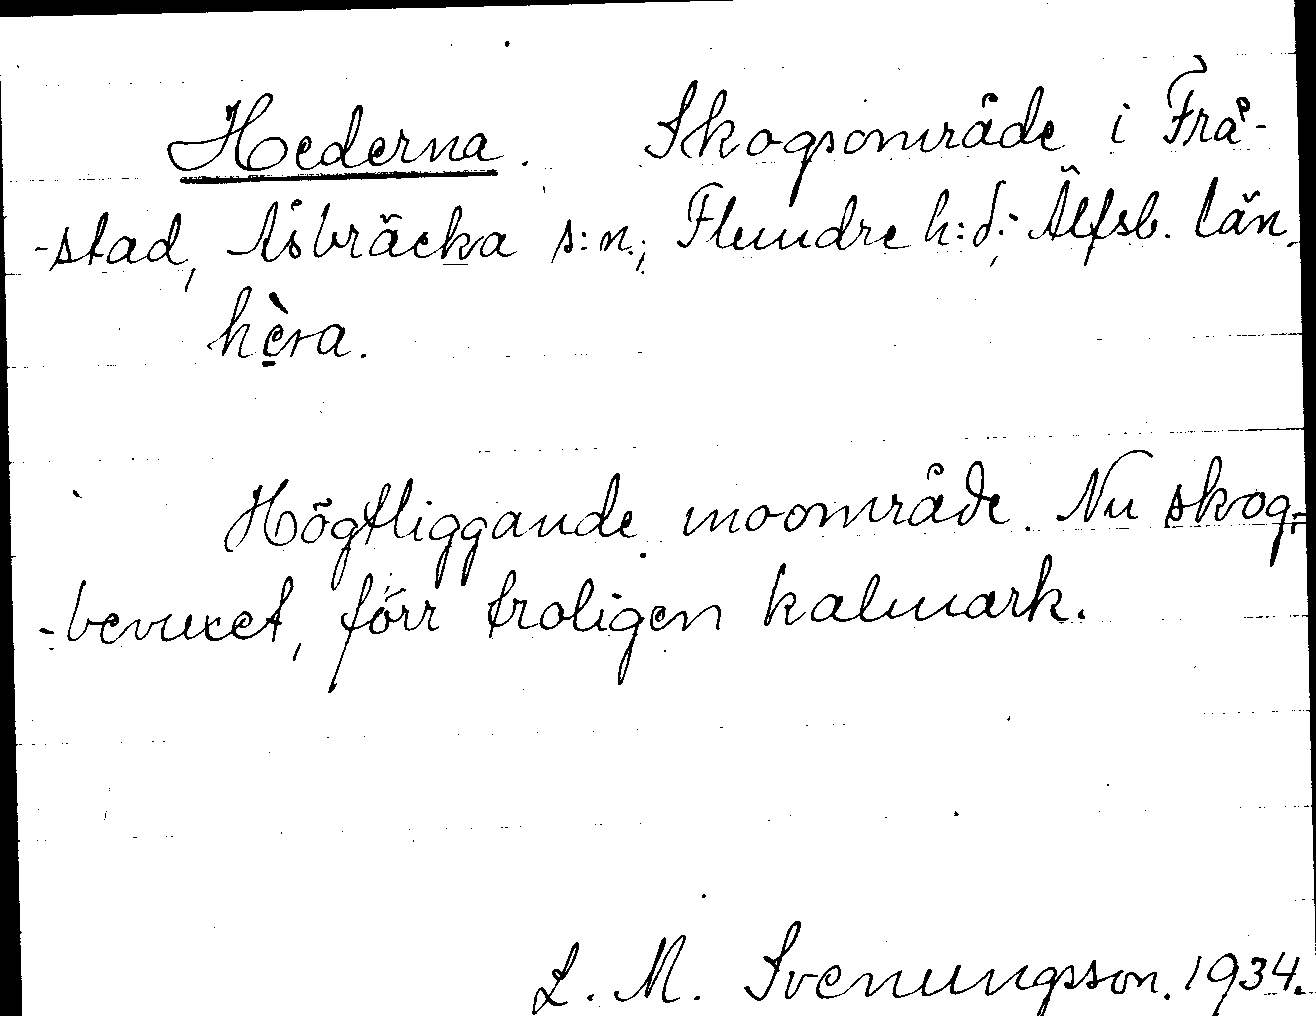 Hederna. Skogsområde i Frå-
-stad, Åsbräcka s:n; Flundre h:d; Älfsb. län.
hèra.
Högtliggande moområde. Nu skog-
-bevuxet, förr troligen kalmark.
L. M. Svenungsson. 1934.